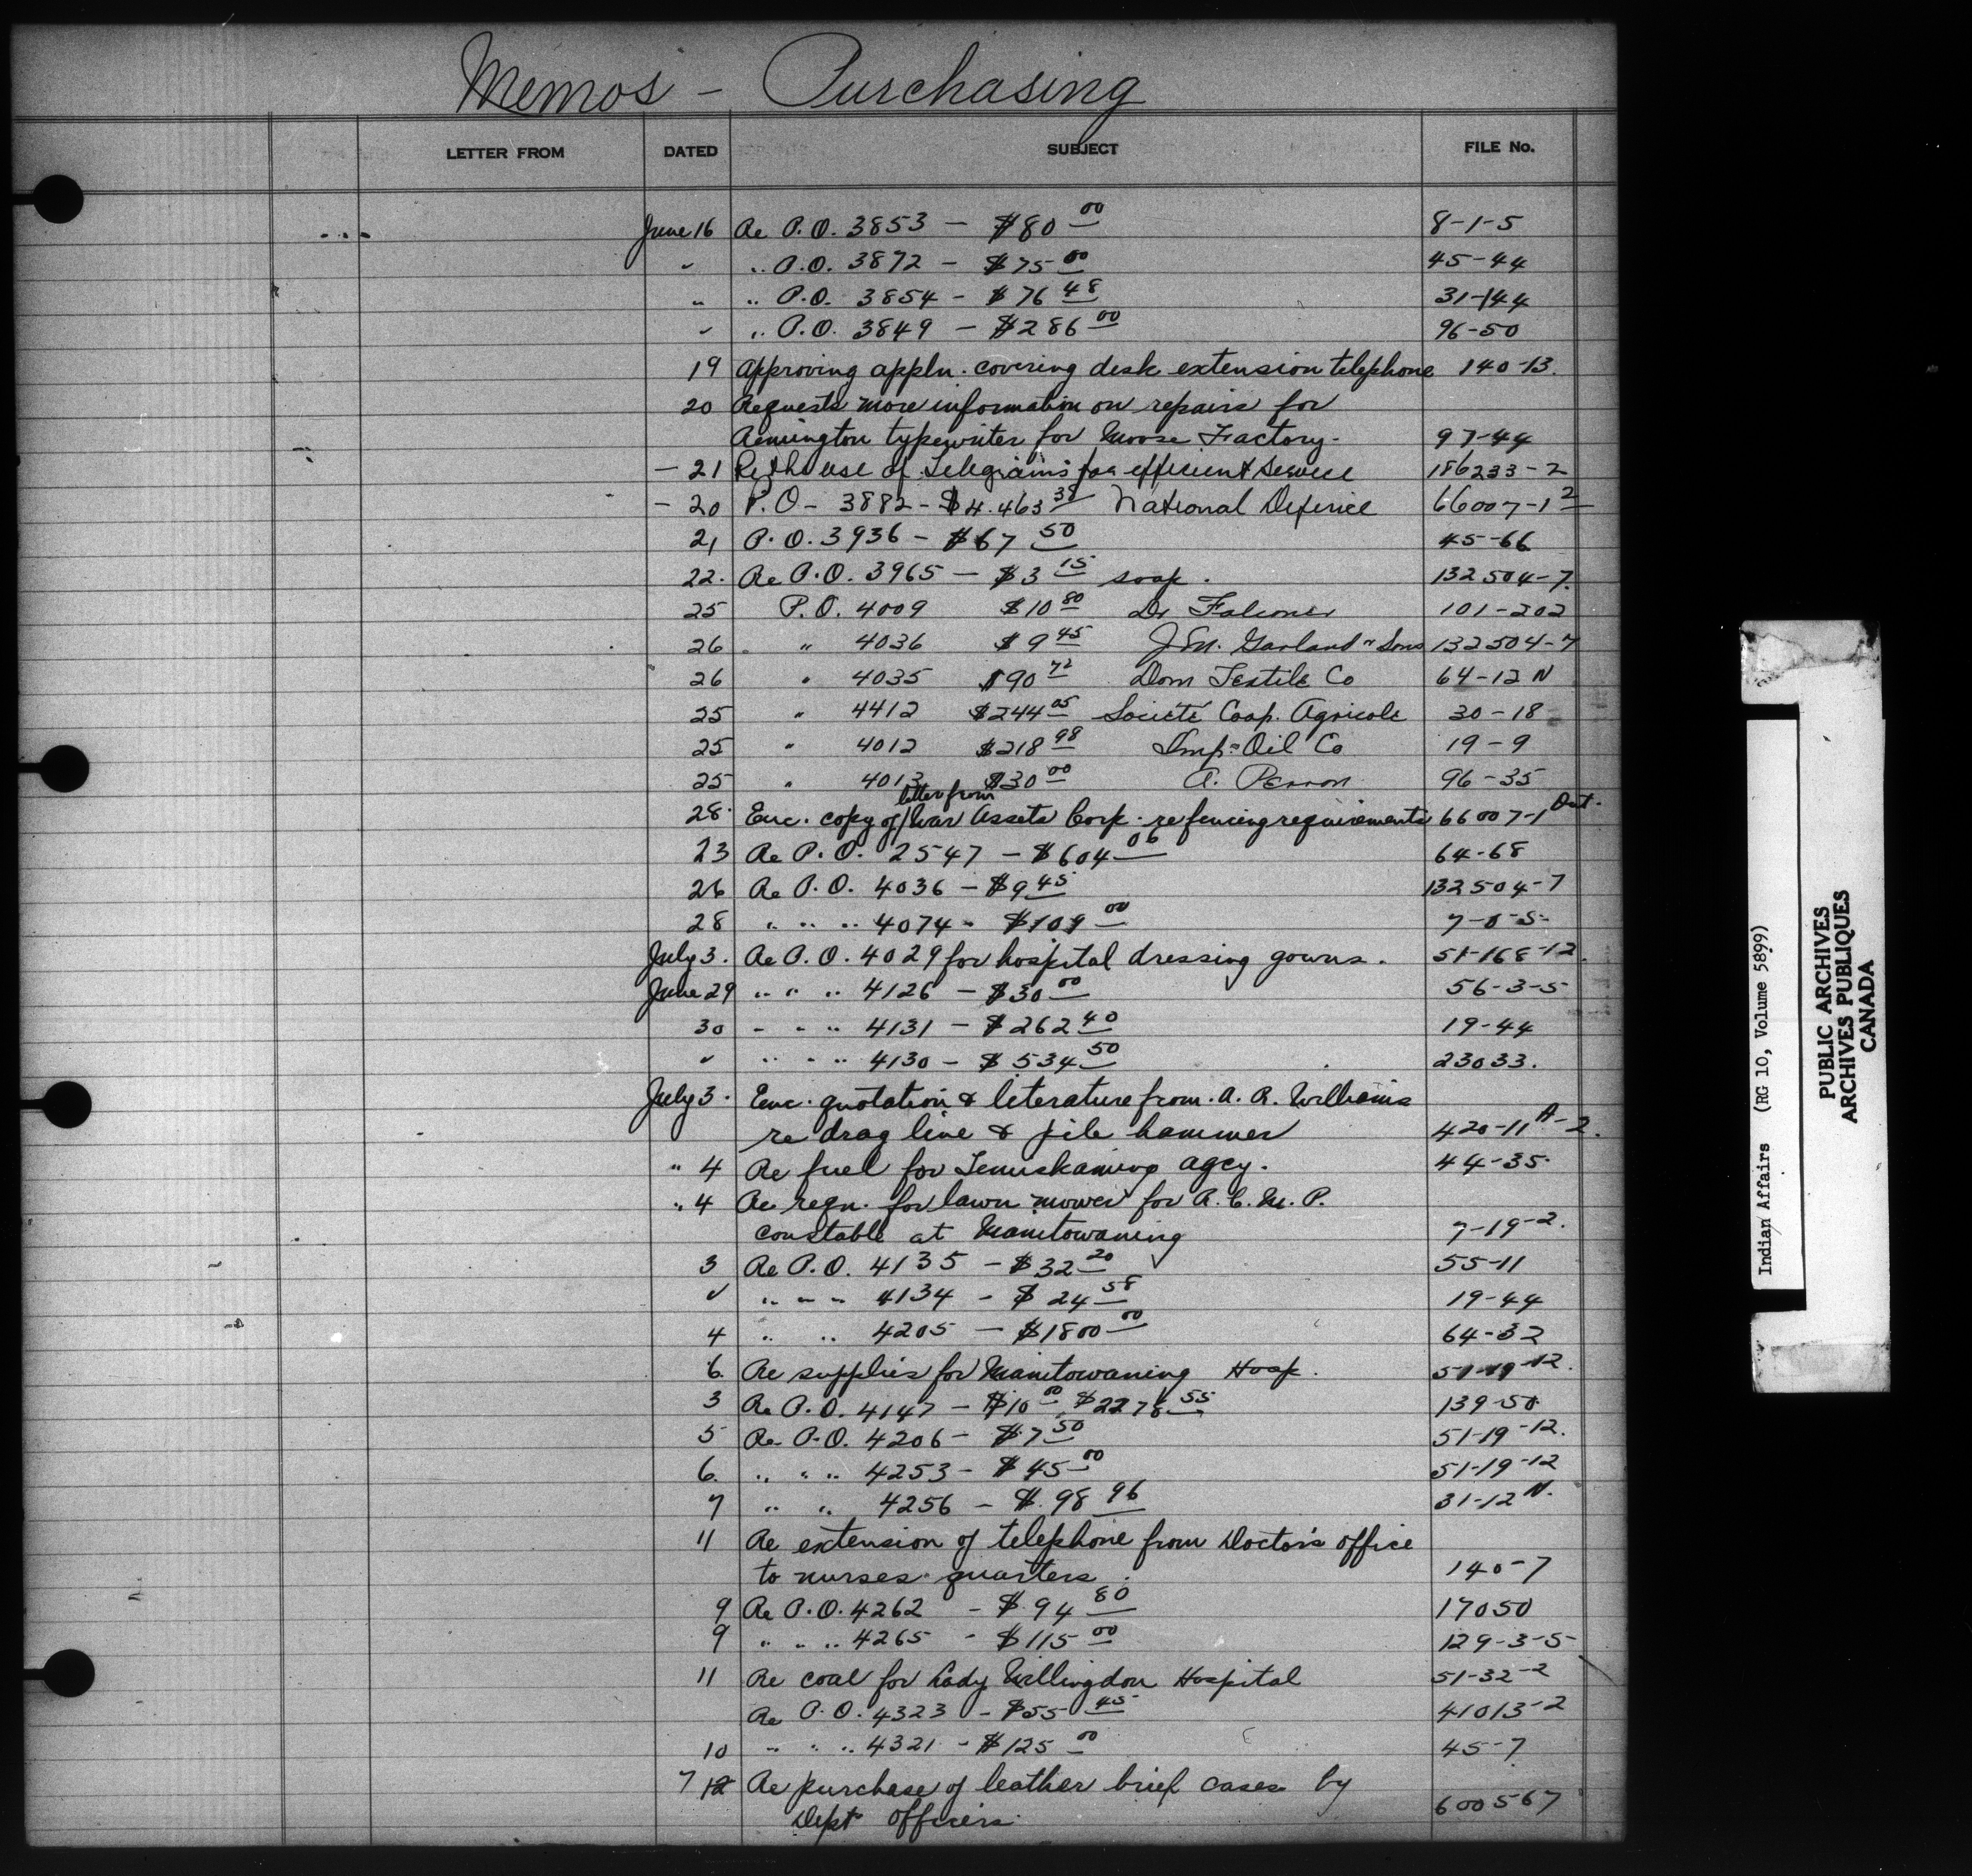 Memos - Purchasing
LETTER FROM DATED SUBJECT FILE No.
June 16 Re P.O. 3853 - $80 00 8-1-5
" " P.O. 3872 - $75 00 45-44
" " P.O. 3854 - $76 48 31-44
" " P.O. 3849 - $286 00 96-50
19 Approving appln. covering desk extension telephone 140-13.
20 Requests more information on repairs for
Remington typewriter for Moose Factory - 97-44
- 21 Re the use of Telegrams for efficient service 186233-2
- 20 P.O - 3882 - $4.463 38 National Defence 66007-1 2
21 P.O. 3936 - $67 50 45-66
22. Re P.O. 3965 - $3 15 soap. 132504-7.
25 P.O. 4009 $10 80 Dr Falconer 101-202
26 " 4036 $9 45 J.M. Garland " Sons 132504-7
26 " 4035 $90 72 Dom Textile Co 64-12 N
25 " 4412 $244 05 Societé Coop. Agricole 30-18
25 " 4012 $218 98 Imp. Oil Co 19-9
25 " 4013 $30 00 A. Perron 96-35
letter from
28. Enc. copy of / War Assets Corp. re fencing requirements 66007-1
23 Re P.O. 2547 - $604 06 64-68
26 Re P.O. 4036 - $9 45 132504-7
28 " " " 4074 - $109 00
July 3. Re P.O. 4029 for hospital dressing gowns. 51-168-12.
June 29 " " " 4126 - $30 00 56-3-5
30 " " " 4131 - $262 40 19-44
" " " " 4130 - $534 50 23033.
July 3. Enc. quotation & literature from A. R. Williams
re drag line & pile hammer 420-11 A-2.
" 4 Re fuel for Temiskaming agcy. 44-35.
" 4 Re reqn. for lawn mower for R.C.M.P.
constable at Manitowaning 7-19-2.
3 Re P.O. 4135 - $32 20 55-11
" " " " 4134 - $24 58 19-44
4 " " 4205 - $1800 00 64-32
6. Re supplies for Manitowaning Hosp. 51-19-12.
3 Re P.O. 4147 - $10 00, $2278 55 139-50.
5 Re P.O. 4206 - $7 50 51-19-12.
6. " " " 4253 - $45 00 51-19-12
7 " " 4256 - $98 96 31-12 N.
11 Re extension of telephone from Doctor's office
to nurses quarters. 140-7
9 Re P.O. 4262 - $94 80 17050
9 " " " 4265 - $115 00 129-3-5
11 Re coal for Lady Willingdon Hospital 51-32-2
Re P.O. 4323 - $55 45 41013-2
10 " " " 4321 - $125 00 45-7
7 12 Re purchase of leather brief cases by
Dept officers. 600567
Indian Affairs (RG 10, Volume 5899)
PUBLIC ARCHIVES
ARCHIVES PUBLIQUES
CANADA